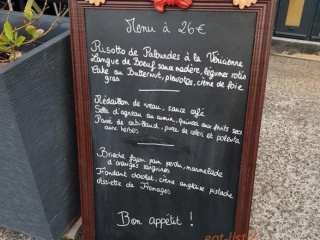 Menu à 26€
Risotto de Palourdes à la Vénicienne
Langue de Boeuf sauce madère, légumes rotis
Cake au Butternut, pleurotes, crème de foie
gras
Médaillon de veau, sauce café
Selle d'agneau au cumin, quinoa aux fruits secs
Pavé de cabillaud, purée de céleri et poteva
aux herbes
Brioche façon pain perdu, marmelade
d'oranges sanguines
Fondant chocolat, crème anglaise pistache
Assiette de Fromages
Bon appétit !